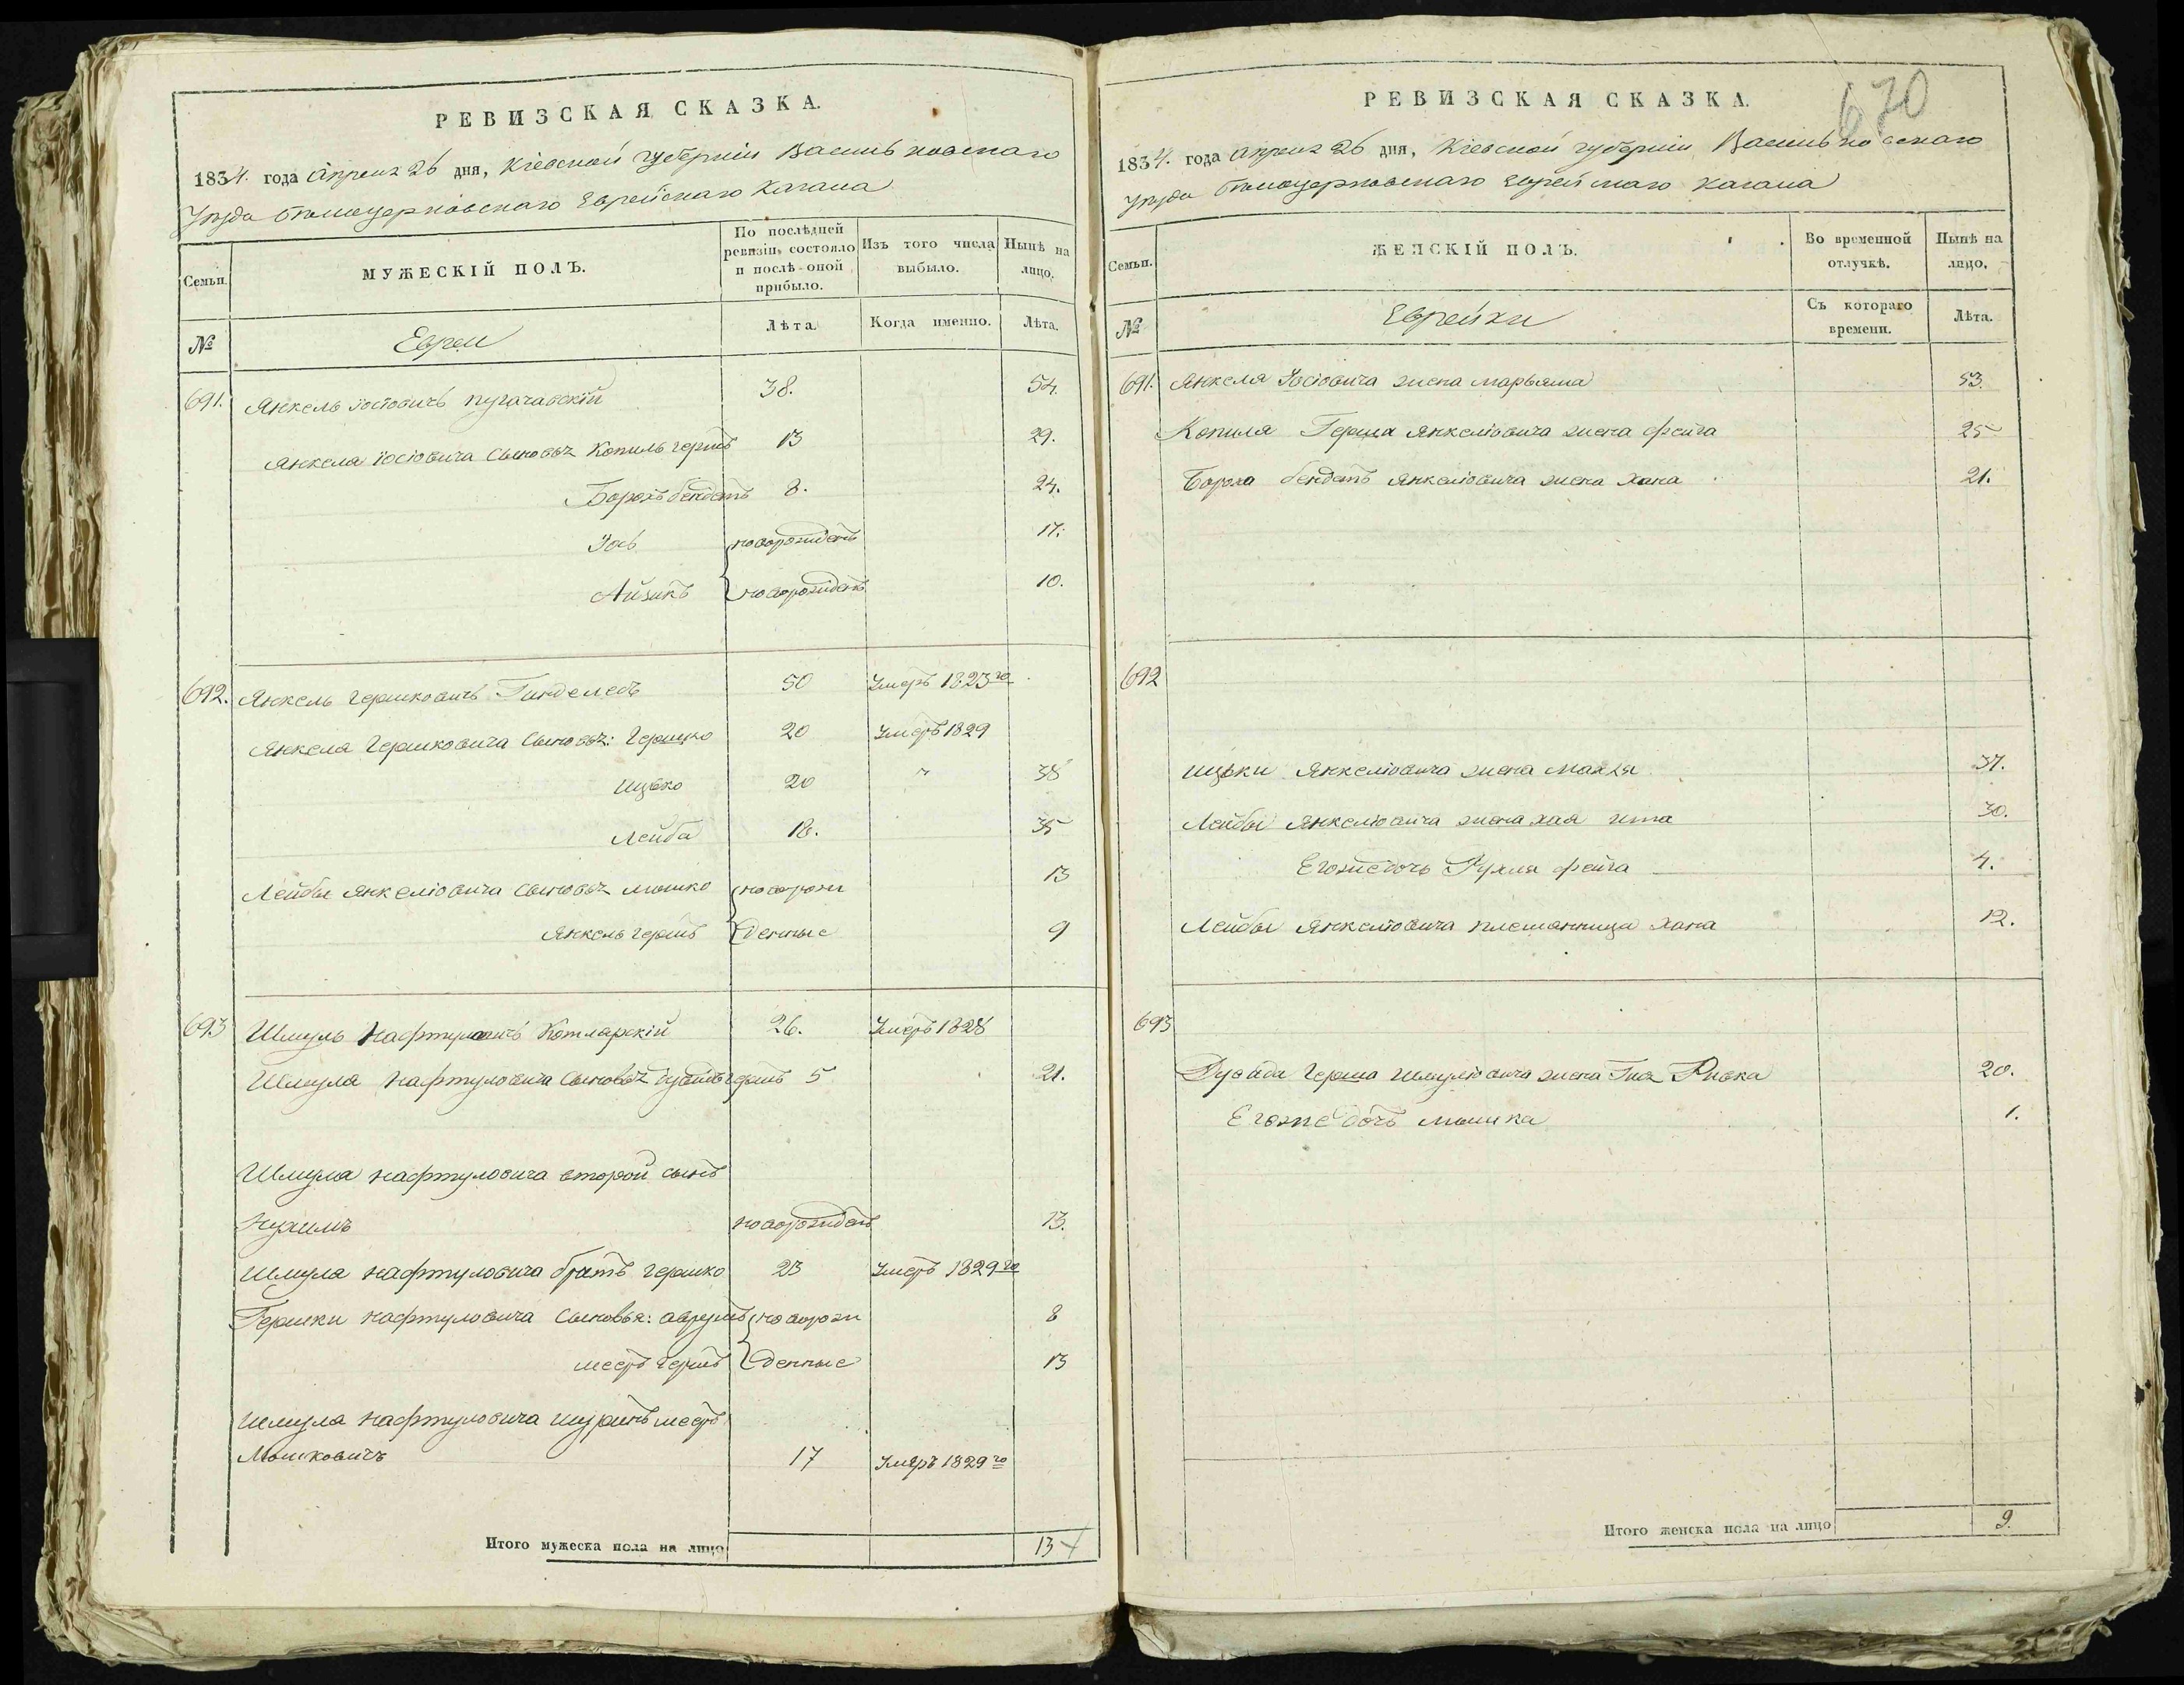 РЕВИЗСКАЯ СКАЗКА.
1834. года Апреля 26 дня, Кіевской губерніи Васильковскаго
Уѣзда Бѣлоцерковскаго Еврейскаго Кагала
Семьи.
МУЖЕСКІЙ ПОЛЪ.
По послѣдней ревизіи состояло и послѣ оной прибыло.
Изъ того числа выбыло.
Нынѣ на лицо.
№
Евреи
Лѣта
Когда именно.
Лѣта.
691. Янкель Іосіовичъ Пугачавскій 38. 54.
Янкеля Іосіовича сыновья Копиль Гершъ 13 29.
Борохъ Бендетъ 8. 24.
Іось новорожденъ 17.
Айзикъ новорожденъ 10.
692. Янкель Гершковичъ Гинделесъ 50 Умеръ 1823го
Янкеля Гершковича сыновья: Гершко 20 Умеръ 1829
Ицько 20 " 38
Лейба 18. 35
Лейбы Янкеліовича сыновья Мошко новорож 13
Янкель Гершъ денные 9
693 Шмуль Нафтуловичъ Котларскій 26. Умеръ 1828
Шмуля Нафтуловича сыновья Гершъ 5 21.
Шмуля Нафтуловича второй сынъ
Нухимъ новорожденъ 13.
Шмуля Нафтуловича братъ Гершко 23 Умеръ 1829го
Гершки Нафтуловича сыновья: Аврумъ новорож 8
Мееръ Гершъ денные 13
Шмуля Нафтуловича шуринъ Мееръ
Мошковичъ 17 Умеръ 1829го
Итого мужеска пола на лицо 13
670
РЕВИЗСКАЯ СКАЗКА.
1834. года Апреля 26 дня, Кіевской губерніи Васильковскаго
Уѣзда Бѣлоцерковскаго Еврейскаго Кагала
Семьи.
ЖЕНСКІЙ ПОЛЪ.
Во временной отлучкѣ.
Нынѣ на лицо.
№
Еврейки
Съ котораго времени.
Лѣта.
691. Янкеля Іосіовича жена Марьяма 53.
Копиля Герша Янкеліовича жена Фейга 25
Бороха Бендетъ Янкеліовича жена Хана 21.
692
Ицьки Янкеліовича жена Махля 37.
Лейбы Янкеліовича жена Хая Ита 30.
Его же дочь Рухля Фейга 4.
Лейбы Янкеліовича племянница Хана 12.
693
Герша Шмуліовича жена Ривка 20.
Его же дочь 1.
Итого женска пола на лицо 9.